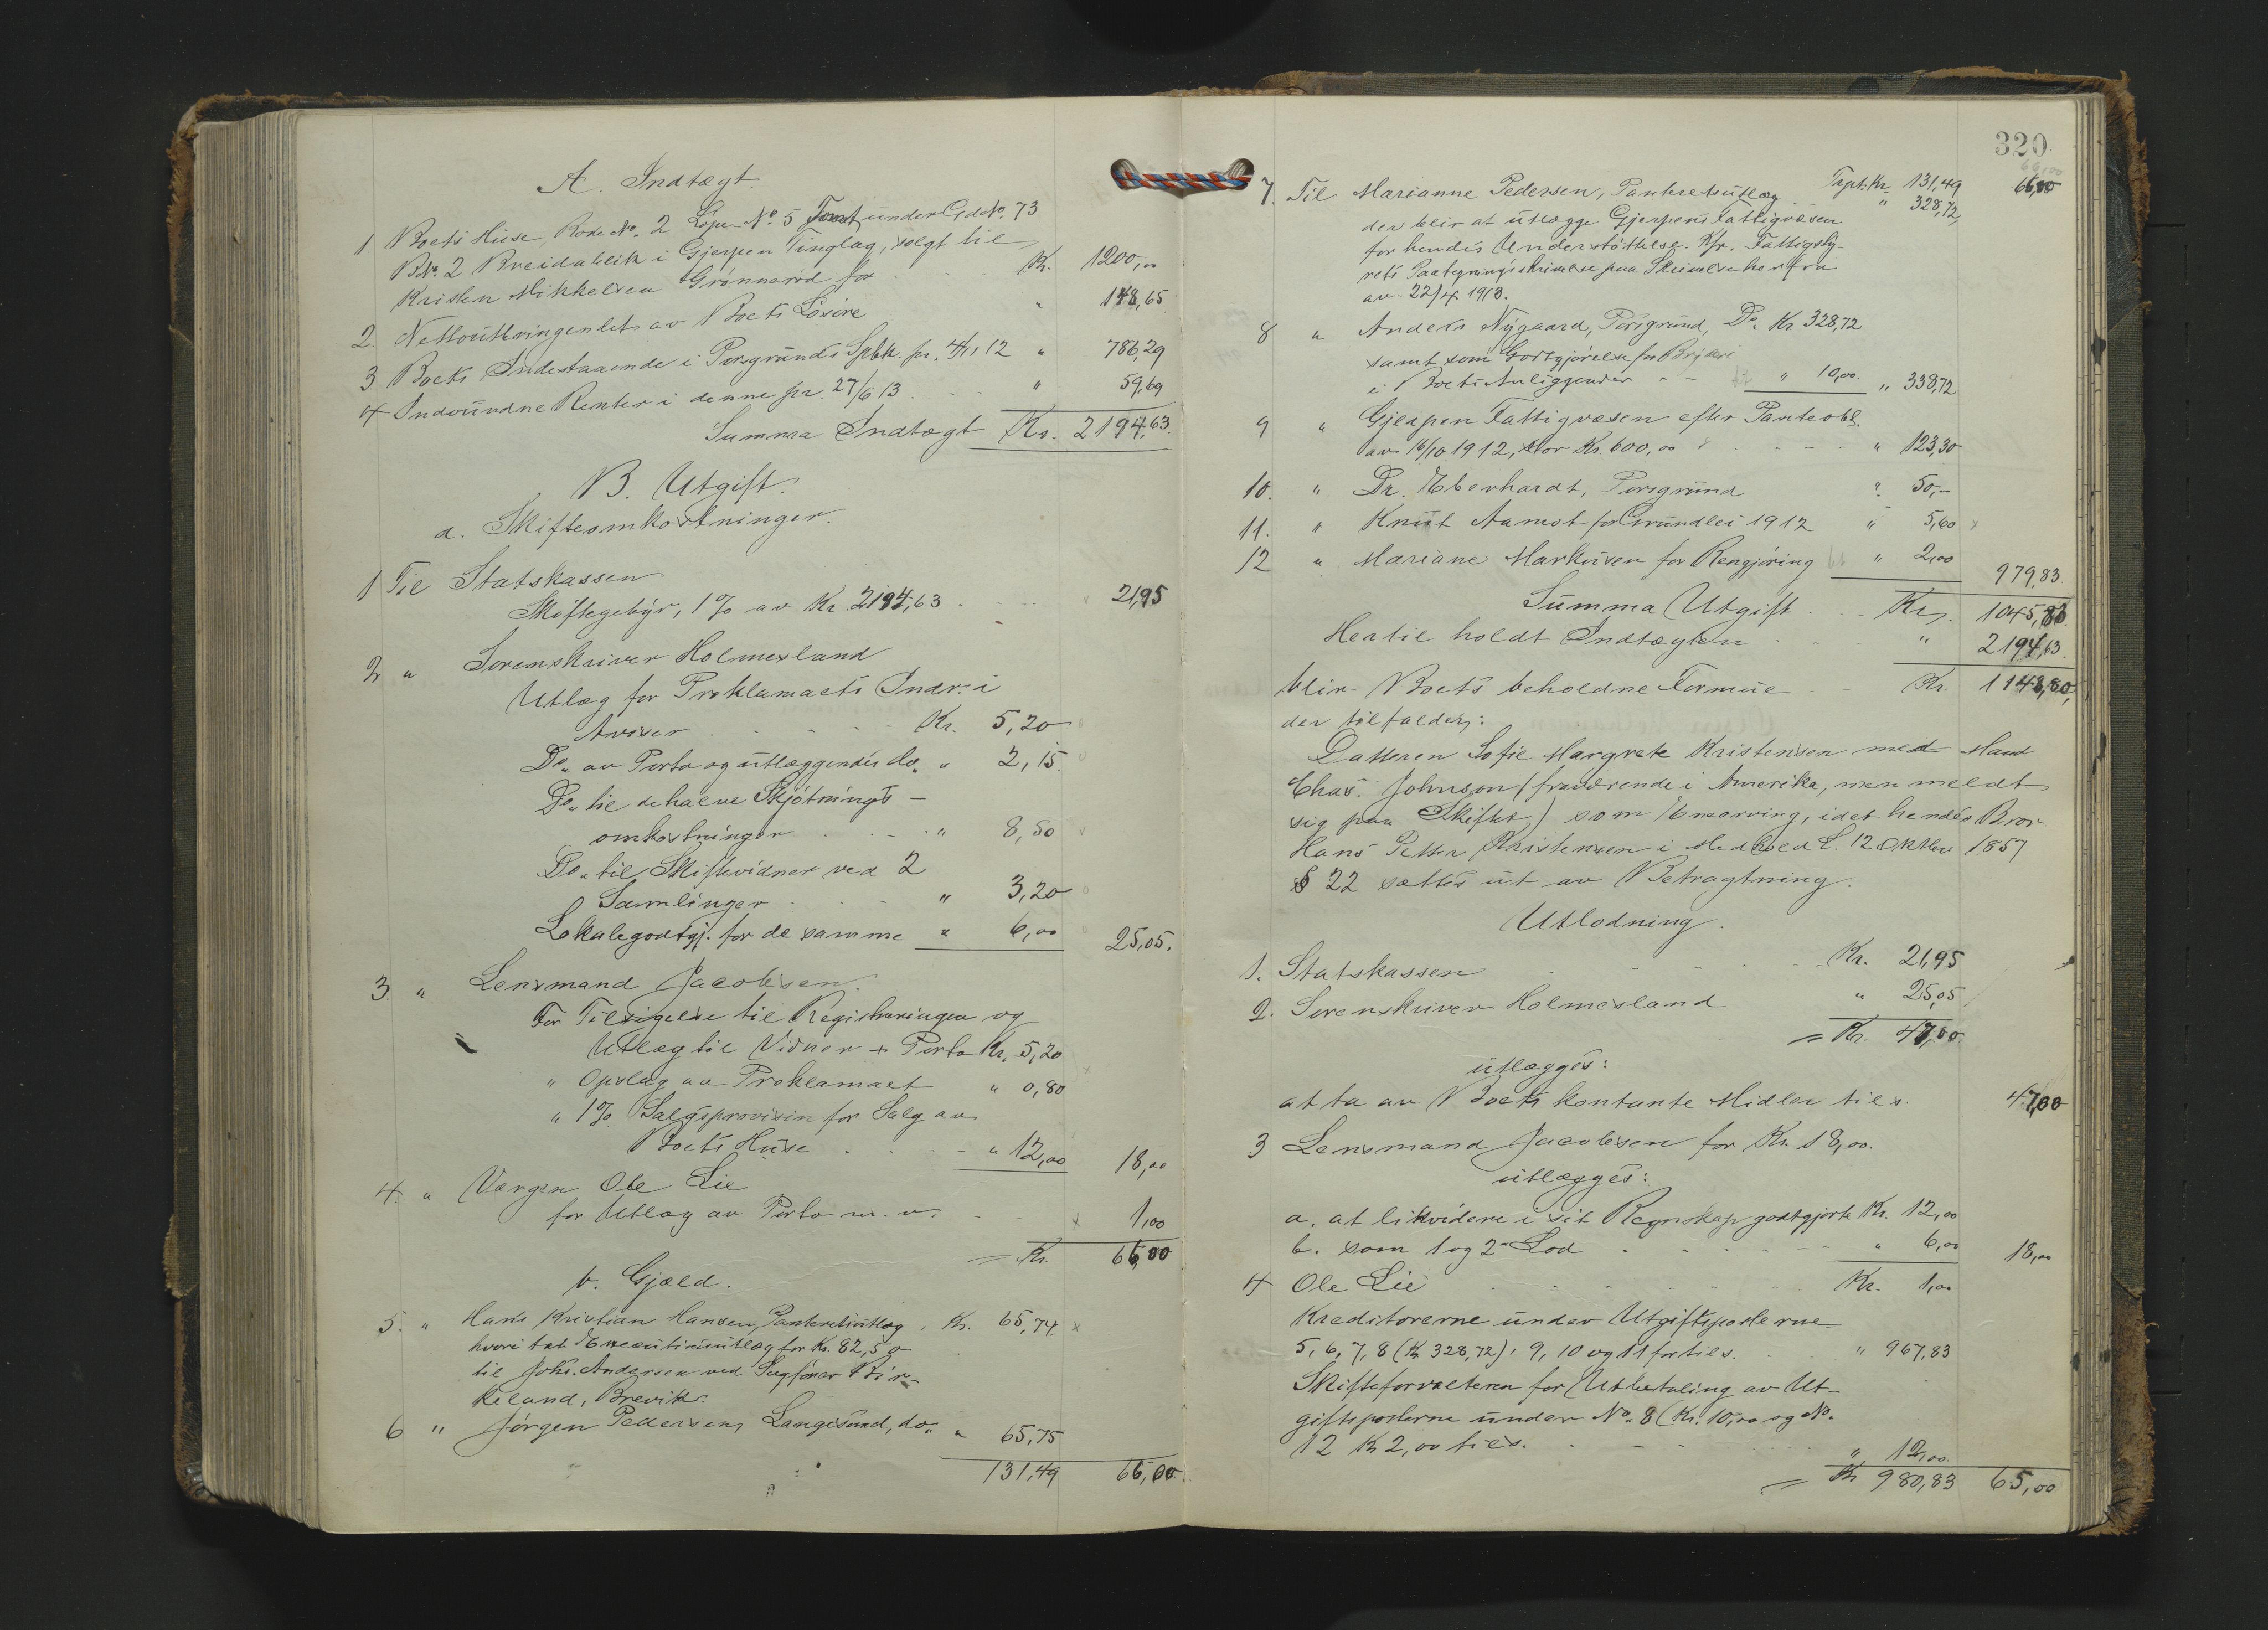 A. Indtægt.
1. Boets Huse, Rode No. 2 Løpe No. 5 Tomt under G.do No. 73
BNo. 2 Breidablik i Gjerpen Tinglag, solgt til
Kristen Mikkelsen Grønnerød for . . . Kr. 1200,00
2. Nettoutbringendet av Boets Løsøre " 148,65
3 Boets Indestaaende i Porsgrunds Spbk. pr. 4/11 12 " 786,29
4 Indvundne Renter i denne pr. 27/6 13 . . . " 59,69
Summa Indtægt Kr. 2194,63.
B. Utgift.
a. Skifteomkostninger.
1 Til Statskassen
Skiftegebyr, 1% av Kr. 2194,63 . . . 21,95
2 " Sorenskriver Holmesland
Utlæg for Proklamaets Indr. i
Aviser . . . Kr. 5,20
Do. av Porto og utlæggendes do. " 2,15
Do. til de halve Skjøtnings-
omkostninger . . . " 8,50
Do. til Skiftevidner ved 2
Samlinger . . . " 3,20
Lokalegodtgj. for de samme " 6,00 25,05.
3. " Lensmand Jacobsen.
For Tilsigelse til Registreringen og
Utlæg til Vidner + Porto Kr. 5,20
" Opslag av Proklamaet " 0,80
" 1% Salgsprovision for Salg av
Boets Huse . . . " 12,00 18,00
4. " Værgen Ole Lie
for Utlæg av Porto m. v. . . x 1,00
= Kr. 66,00
b. Gjæld.
5. " Hans Kristian Hansen, Panteretsutlæg . Kr. 65,74 x
hvori tat Executionsutlæg for Kr. 82,50
til Johs. Andersen ved Sagfører Bir-
keland, Brevik.
6 " Jørgen Pedersen, Langesund, do. " 65,75
131,49 66,00
320.
7. Til Marianne Pedersen, Panteretsutlæg Trpt. Kr. 131,49 66,00
" 328,72,
der blir at utlægge Gjerpens Fattigvæsen
for hendes Understøttelse. Kfr. Fattigsty-
rets Paategningsskrivelse paa Skrivelse herfra
av 22/4 1913.
8 " Anders Nygaard, Porsgrund, Do. Kr 328,72
samt som Godtgjørelse for
i Boets Anliggender - - " 10,00. " 338,72
9 " Gjerpen Fattigvæsen efter Panteobl.
av 16/10 1912, stor Kr. 600,00 . . . " 123,30
10. " Dr. Eberhardt, Porsgrund " 50,-
11. " Knut Aamot for Grundlei 1912 " 5,60 x
12 " Mariane Markusen for Rengjøring " 2,00 979,83.
Summa Utgift . . Kr. 1045,83.
Hertil holdt Indtægten . . . " 2194,63.
blir Boets beholdne Formue . . Kr. 1148,80,
der tilfalder:
Datteren Sofie Margrete Kristensen med Mand
Chas. Johnson (fraværende i Amerika, men meldt
sig paa Skiftet) som Enearving, idet hendes Bror
Hans Petter Kristensen i Medhold L. 12 Oktbr 1857
§ 22 sættes ut av Betragtning.
Utlodning.
1. Statskassen . . . Kr. 21,95
2. Sorenskriver Holmesland " 25,05
= Kr. 47,00
utlægges:
at ta av Boets kontante Midler tils. 47,00
3 Lensmand Jacobsen for Kr. 18,00.
utlægges:
a. at likvidere i sit Regnskap godtgjorte Kr. 12,00
b. som 1 og 2 Lod . . . " 6,00 18,00
4 Ole Lie . . . Kr. 1,00
Kreditorerne under Utgiftsposterne
5, 6, 7, 8 (Kr 328,72), 9, 10 og 11 for tils. . " 967,83
Skifteforvalteren for Utbetaling av Ut-
giftsposterne under No. 8 (Kr. 10,00 og No.
12 Kr 2,00 tils. . . . " 12,00.
= Kr 980,83 65,00